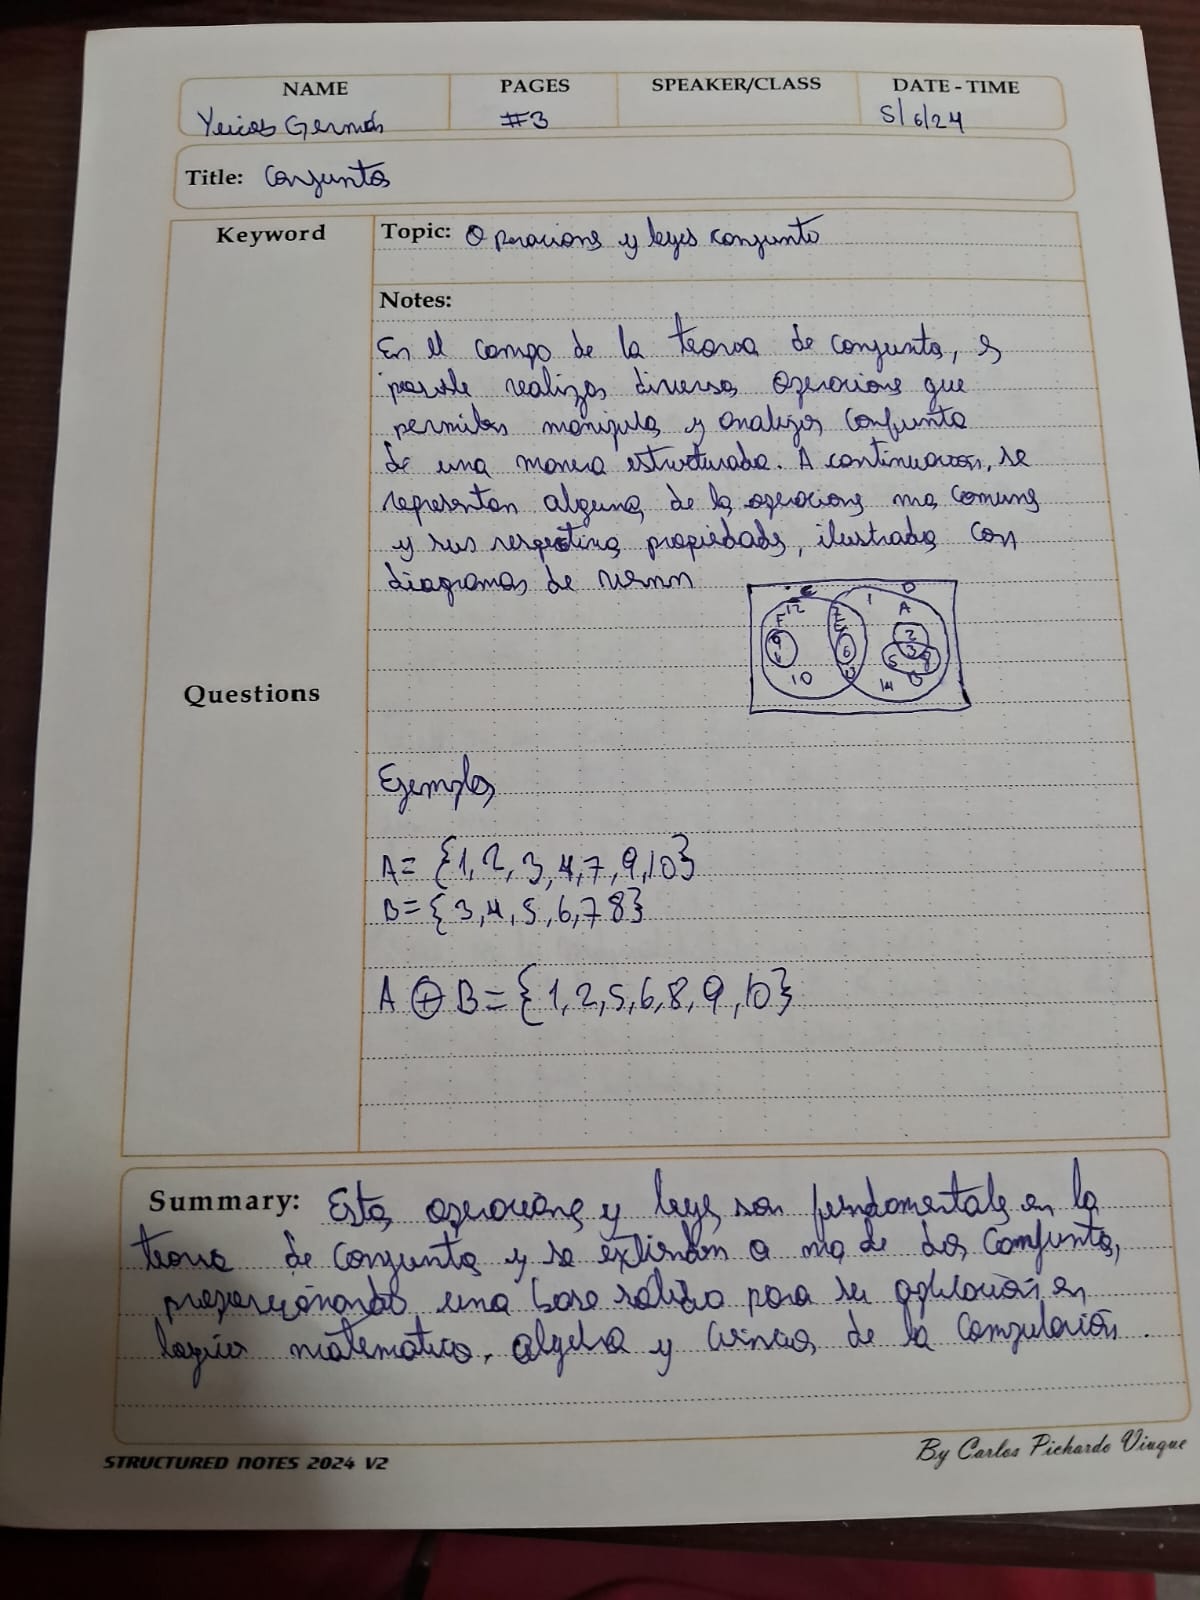 NAME PAGES SPEAKER/CLASS DATE - TIME
#3 5/6/24
Title: Conjuntos
Keyword
Topic: Operaciones y leyes conjunto
Notes:
En el campo de la teoria de conjuntos, es
posible realizar diversas operaciones que
permiten manipular y analizar conjuntos
de una manera estructurada. A continuación, se
representan algunas de las operaciones mas comunes
y sus respectivas propiedades, ilustradas con
diagramas de venn
12 1 A
2
6 3
10 14
Questions
Ejemplos
A= {1, 2, 3, 4, 7, 9, 10}
B= {3, 4, 5, 6, 7 8}
A ⊕ B = {1, 2, 5, 6, 8, 9, 10}
Summary: Estas operaciones y leyes son fundamentales en la
teoria de conjuntos y se extienden a mas de dos conjuntos,
proporcionando una base solida para su aplicación en
logica matematica, algebra y ciencias de la computación.
STRUCTURED NOTES 2024 V2
By Carlos Pichardo Viuque